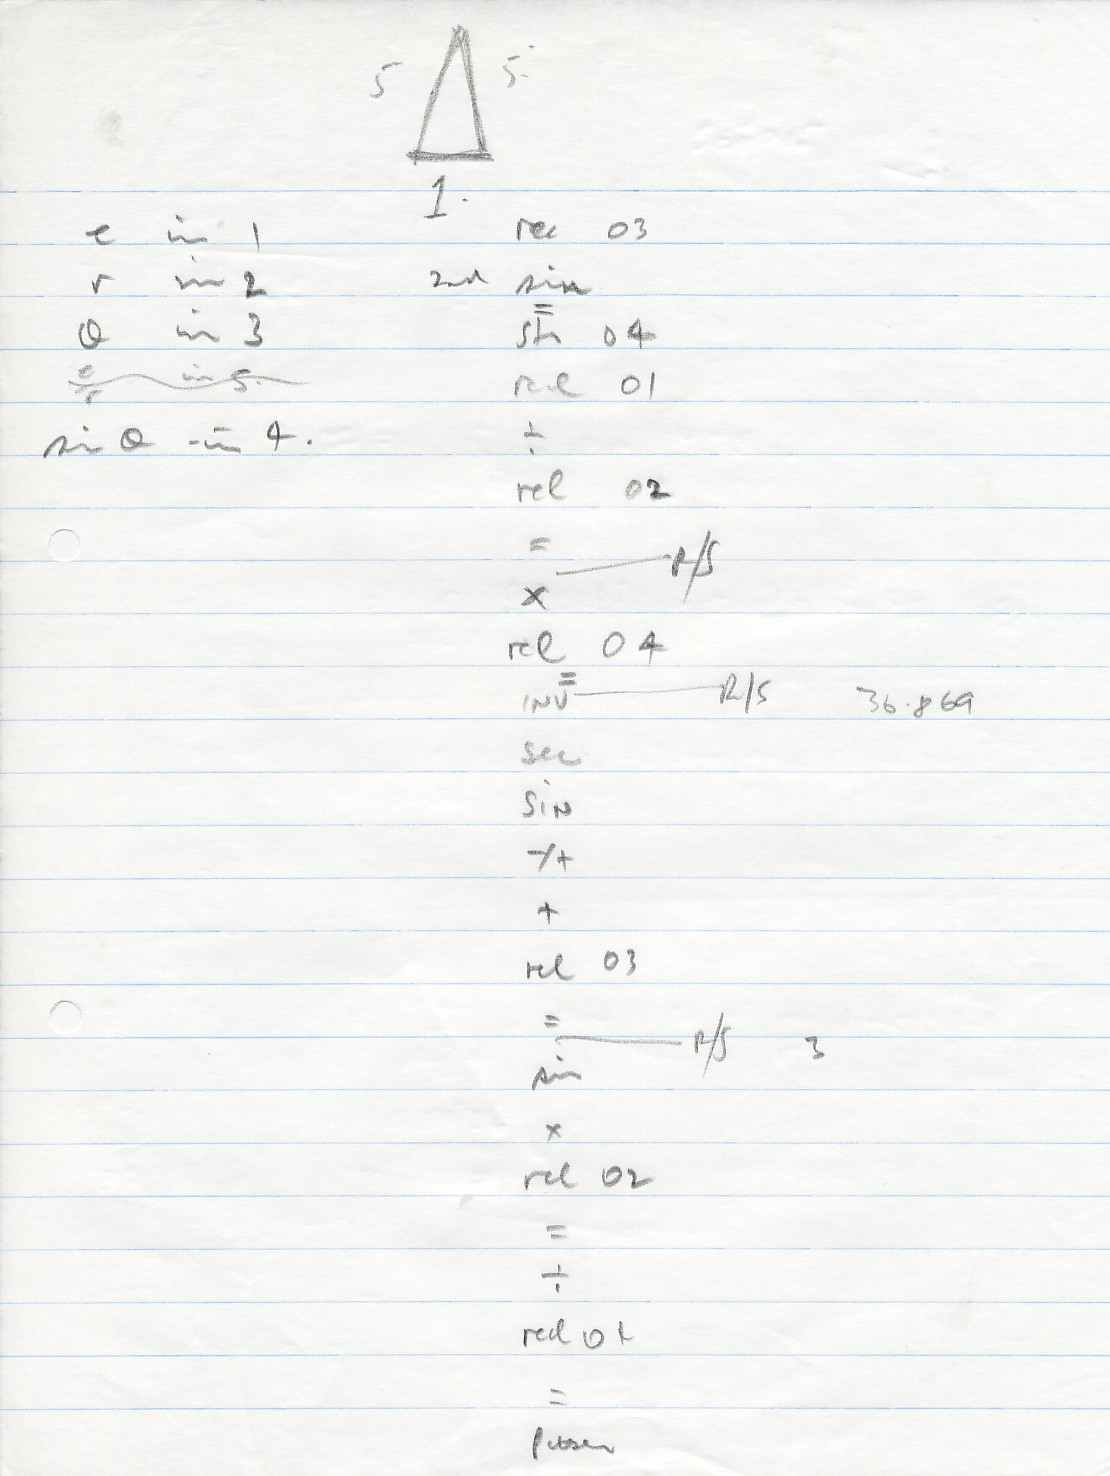 5 5
1.
e in 1
r in 2
θ in 3
e/r in 5.
sin θ in 4.
rcl 03
2nd sin
=
sto 04
rcl 01
÷
rcl 02
=
R/S
×
rcl 04
=
INV R/S 36.869
sin
-/+
+
rcl 03
=
R/S 3
sin
×
rcl 02
=
÷
rcl 01
=